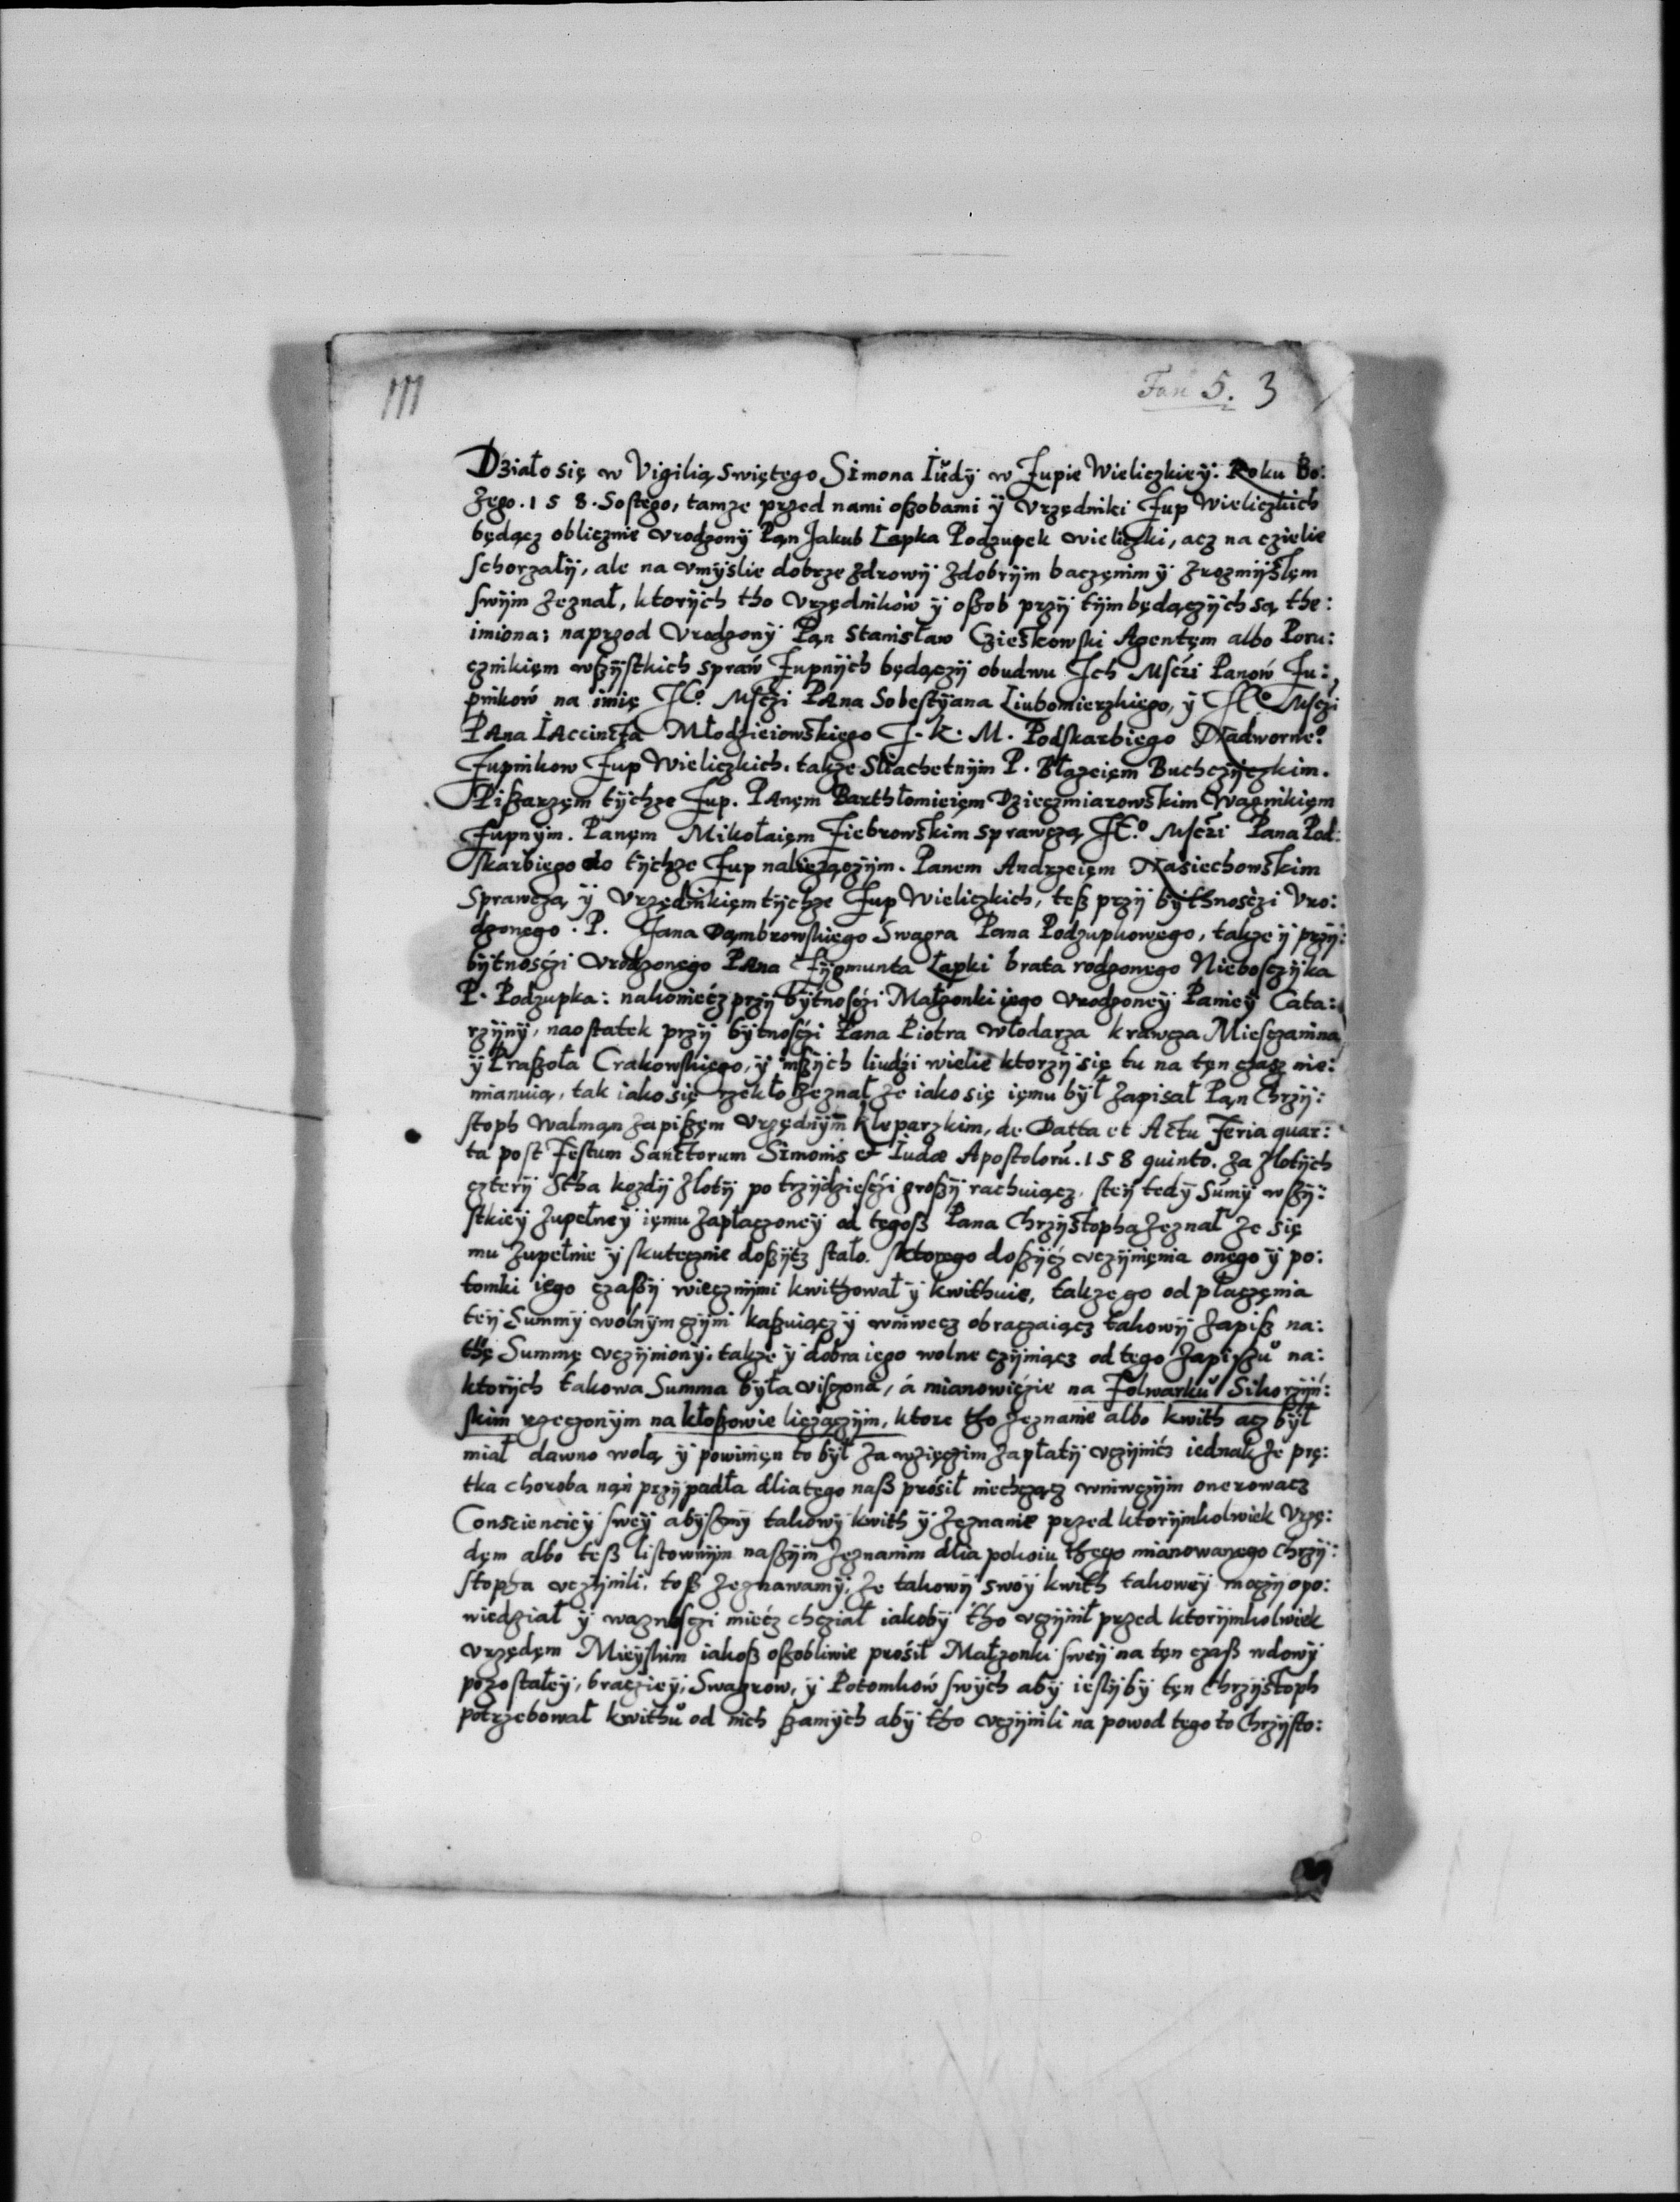 111
Fan 5. 3
Działo się w Vigilią swiętego Simona Iudÿ w Zupie Wieliczkieÿ: Roku Bo:
zego. 1 5 8. Sostego, tamze przed nami oßobami ÿ Vrzędniki Zup Wieliczkich
będącz oblicznie vrodzonÿ Pąn Jakub Łapka Podzupek wieliczki, acz na czielie
schorzałÿ, ale na vmÿslie dobrze zdrowÿ zdobrÿm baczęnim ÿ zrozmÿsłęm
swÿm zeznał, ktorÿch tho Vrzędników ÿ oßob przÿ tÿm będączÿch są the:
imiona: naprzod Vrodzonÿ Pąn Stanisław Czieskowski Agentęm albo Poru:
cznikięm wßÿstkich spraw Zupnÿch będączÿ obudwu Ich Msczi Panow Zu:
pnikow na imię JE° Msczi PAna Sobestÿana Liubomierzkiego, ÿ JE° Msczi
PAna IAccincta Młodzieiowskiego J. K. M. Podskarbiego Nadworne°
Zupnikow Zup Wieliczkich. takze Sliachetnÿm P. Błazeięm Buchczÿczkim.
Pißarzęm tÿchze Zup. PAnęm Barthłomieięm Dzieczmiarowskim Waznikięm
Zupnÿm. Panęm Mikołaięm Ziebrowskim sprawczą JE° Msczi Pana Pod:
skarbiego do tÿchze Zup naliezączÿm. Panem Andrzeięm Nasiechowskim
Sprawczą ÿ Vrzędnikięm tÿchze Zup Wieliczkich, teß przÿ bÿthnosczi Vro:
dzonego. P. Jana Dąmbrowskiego Swagra Pana Podzupkowego, takze ÿ przÿ:
bÿtnosczi Vrodzonego PAna Zÿgmunta Łapki brata rodzonego Niebosczÿka
P. Podzupka: nakoniecz przÿ bÿtnosczi Małzonki iego Vrodzoneÿ Panieÿ Cata:
rzÿnÿ, naostatek przÿ bÿtnosczi Pana Piotra Włodarza krawcza Miesczanina
ÿ Praßoła Crakowskiego, ÿ inßÿch liudzi wielie ktorzÿ się tu na tęn czasz nie:
mianuią, tak iako się rzekło zeznał ze iako się ięmu był zapisał Pąn Chrzÿ:
stoph Walmąn zapißęm Vrzędnÿm Kleparzkim, de Datta et Actu Feria quar:
ta post Festum Sanctorum Simonis et Iudæ Apostolorū. 1 5 8 quinto. za złotÿch
czterÿ stha kozdÿ złotÿ po trzÿdziesczi großÿ rachuiącz, steÿ tedÿ Sumÿ wßÿ:
stkieÿ zupełneÿ ięmu zapłaczoneÿ od tegoß Pana Chrzÿstopha zeznał ze się
mu zupełnie ÿ skutecznie doßÿcz stało. sktorego doßÿcz vczÿnięnia onego ÿ po:
tomki iego czaßÿ wiecznÿmi kwithował ÿ kwithuie, takze go od płaczęnia
teÿ Summÿ wolnÿm czÿni kaßuiącz ÿ wniwecz obraczaiącz takowÿ zapiß na:
thę Summę vczÿnionÿ, takze ÿ dobra iego wolne czÿniącz od tego zapißu na:
ktorÿch takowa Summa bÿła visczona, á mianowiczie na Folwarku Sikorzÿń:
skim rzeczonÿm na kłoßowie liezączÿm, ktore tho zeznanie albo kwith acz bÿł
miał dawno wolą ÿ powinięn to bÿł za wzięczim zapłatÿ vczÿnicz iednak ze prę:
tka choroba nąń przÿpadła dliatego naß prosił niechcząc wniwczÿm onerowacz
Conscienciey sweÿ abÿsmÿ takowÿ kwith ÿ zęznanie przed ktorÿmkolwiek Vrzę:
dęm albo teß listownÿm naßÿm zeznanim dlia pokoiu thego mianowanego Chrzÿ:
stopha vczÿnili, toß zeznawamÿ, ze takowÿ swóÿ kwith takoweÿ moczÿ opo:
wiedział ÿ waznosczi miecz chcział iakobÿ tho vczÿnił przed ktorÿmkolwiek
vrzędęm Mieÿskim iakoß oßobliwie prosił Małzonki sweÿ na tęn czaß wdowÿ
pozostałeÿ, braczieÿ, Swagrow, ÿ Potomków swÿch abÿ iesliÿbÿ tęn Chrzÿstoph
potrzebował kwithu od nich ßamÿch abÿ tho vczÿnili na powod tego to Chrzÿsto: